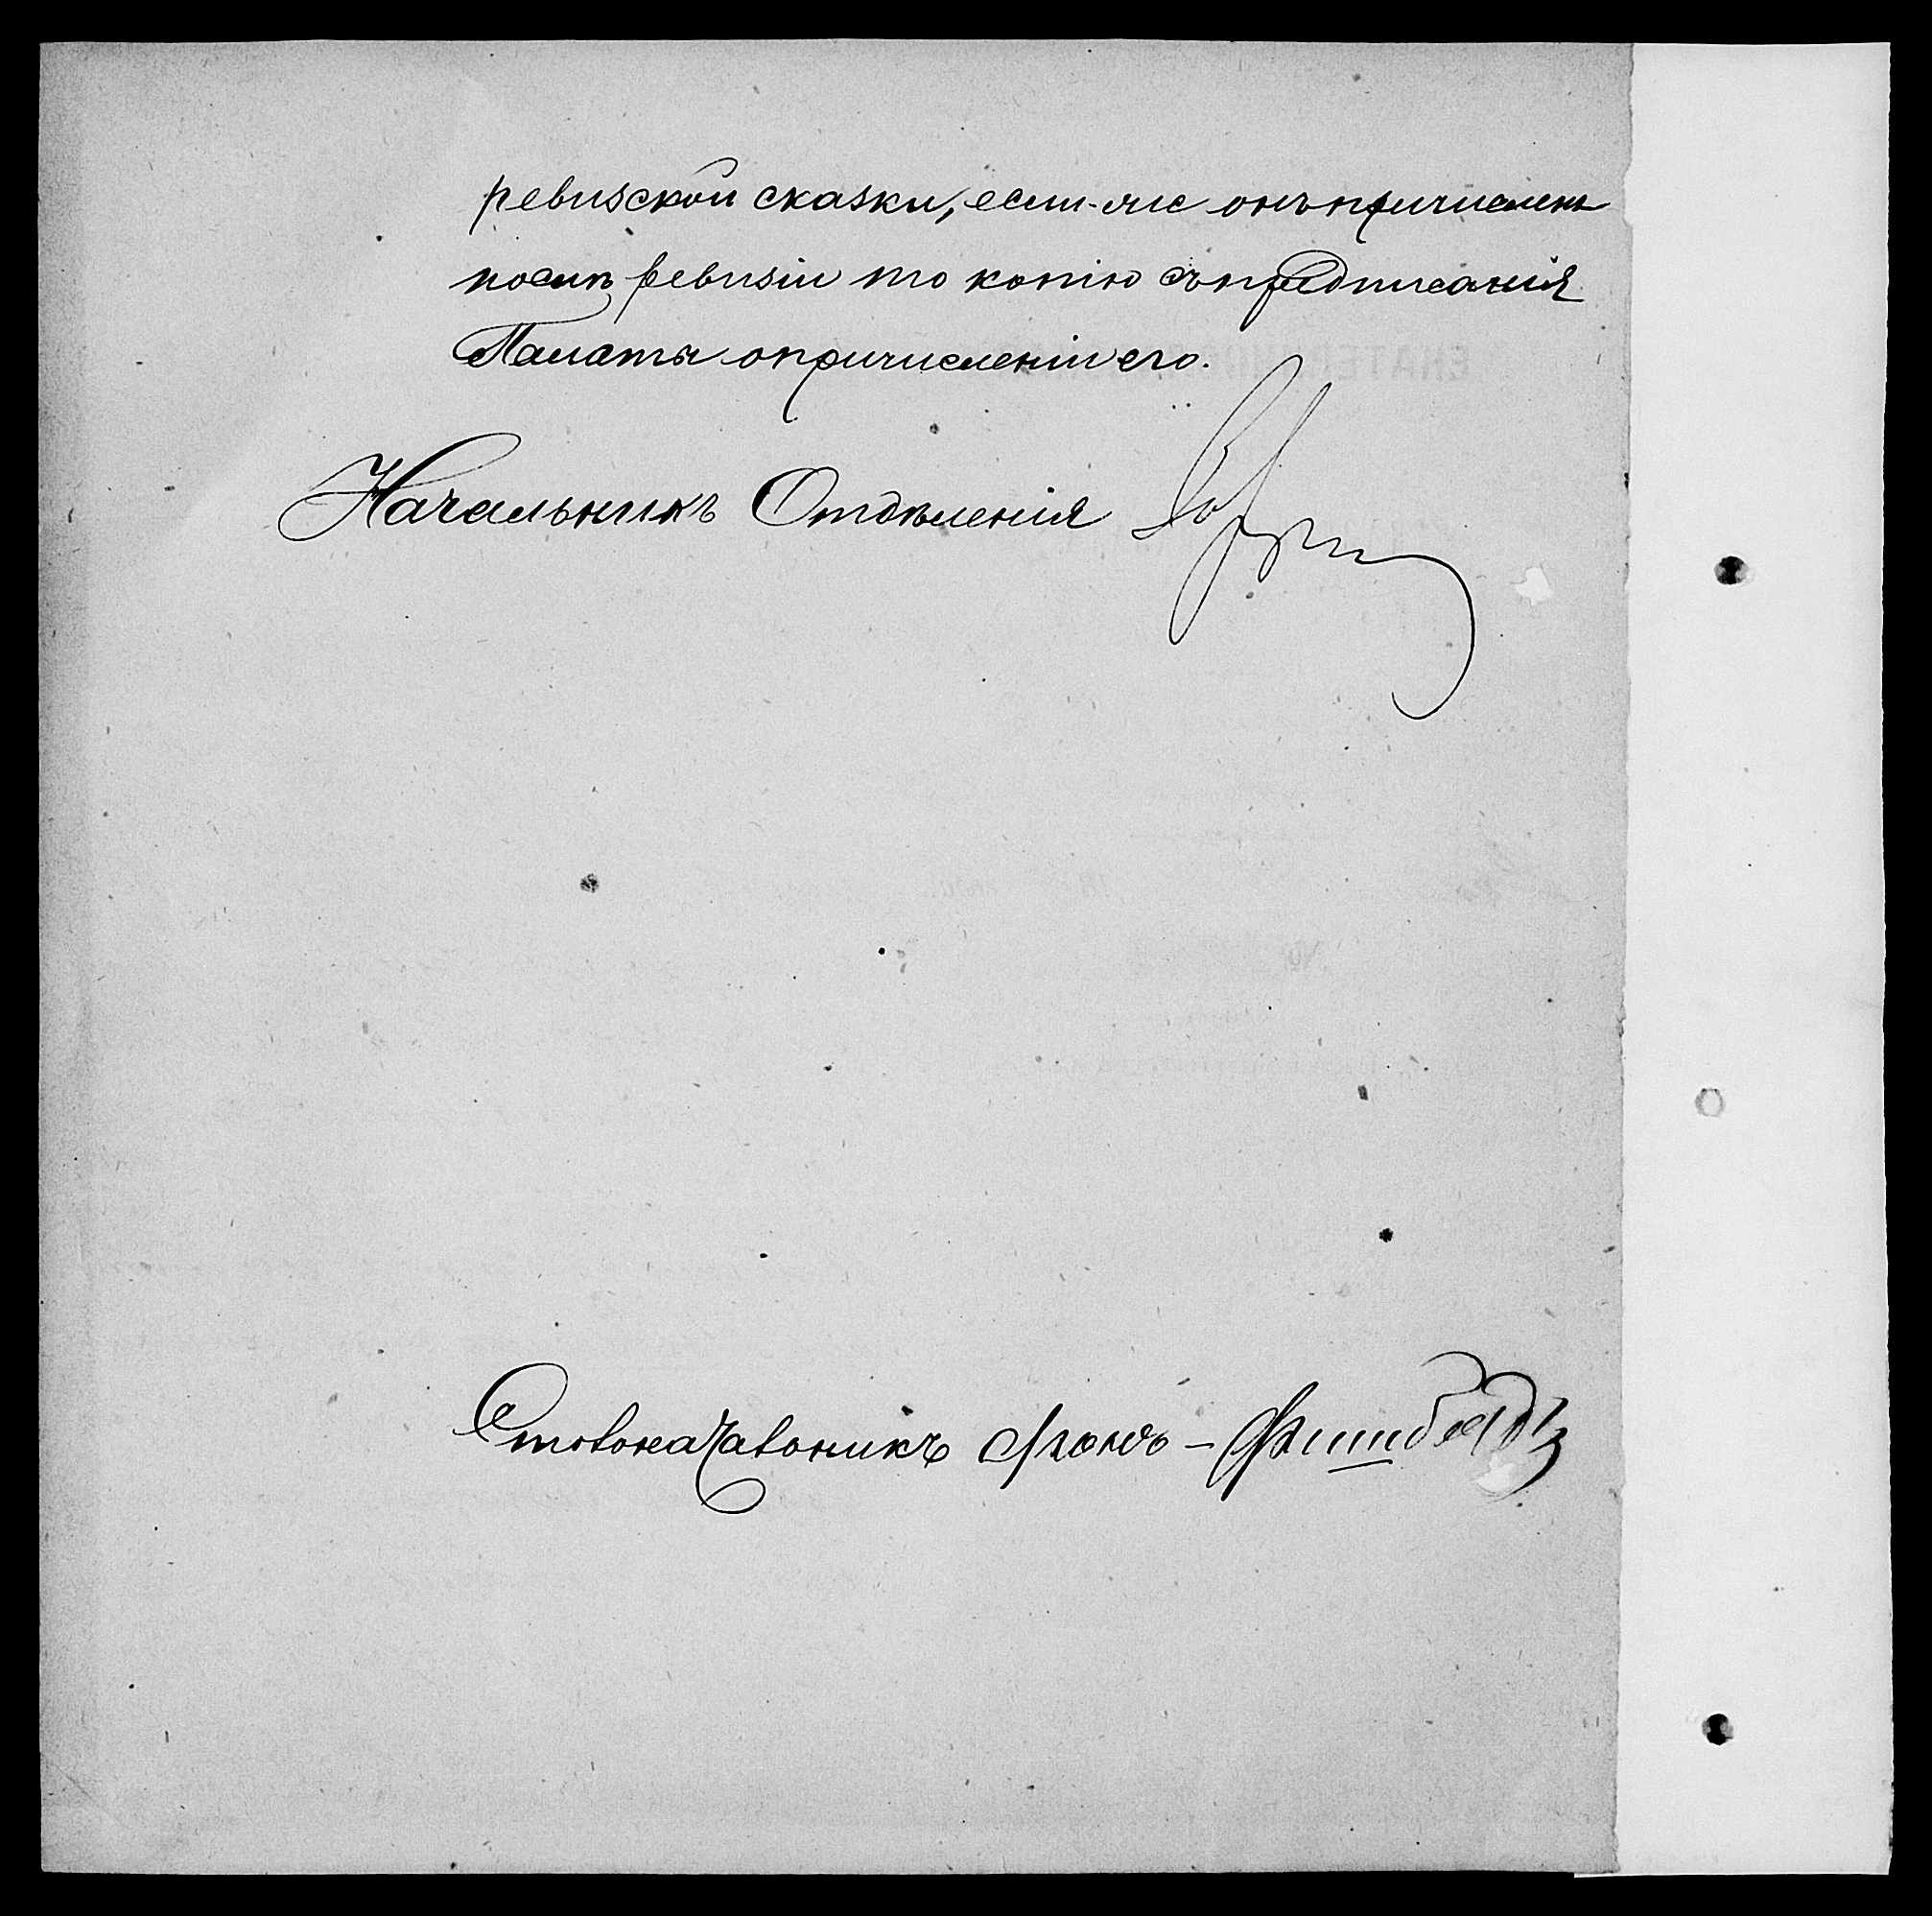 ревизской сказки, если-же онъ причисленъ
послѣ ревизіи то копію съ предписанія
Палаты о причисленіи его.
Начальникъ Отдѣленія
Столоначальникъ фонъ-